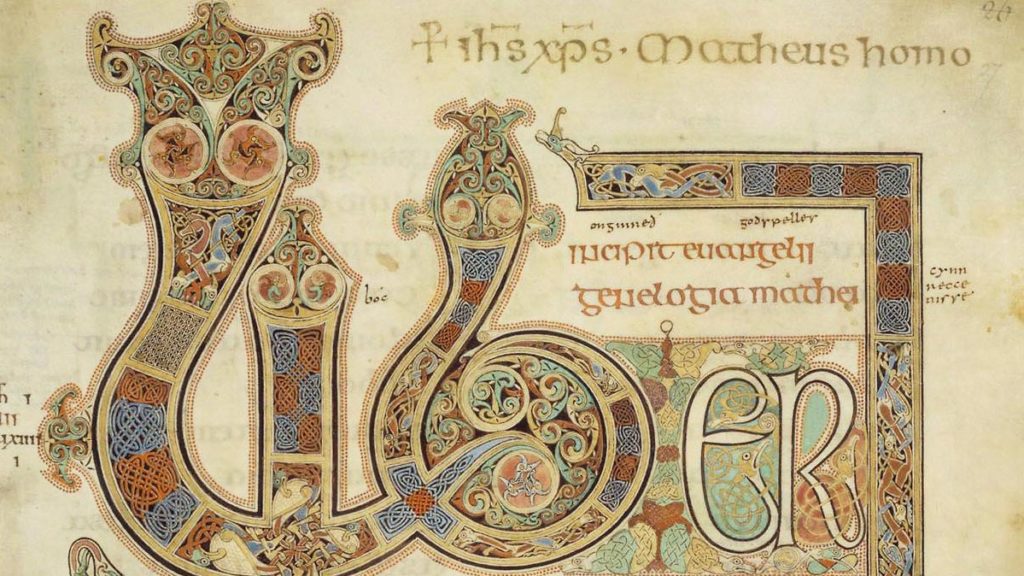 + ihs xps · Matheus homo
onginneð godspelles
incipit euangelii
genelogia mathei
cynn
recce
nisse
boc
LIBER
27